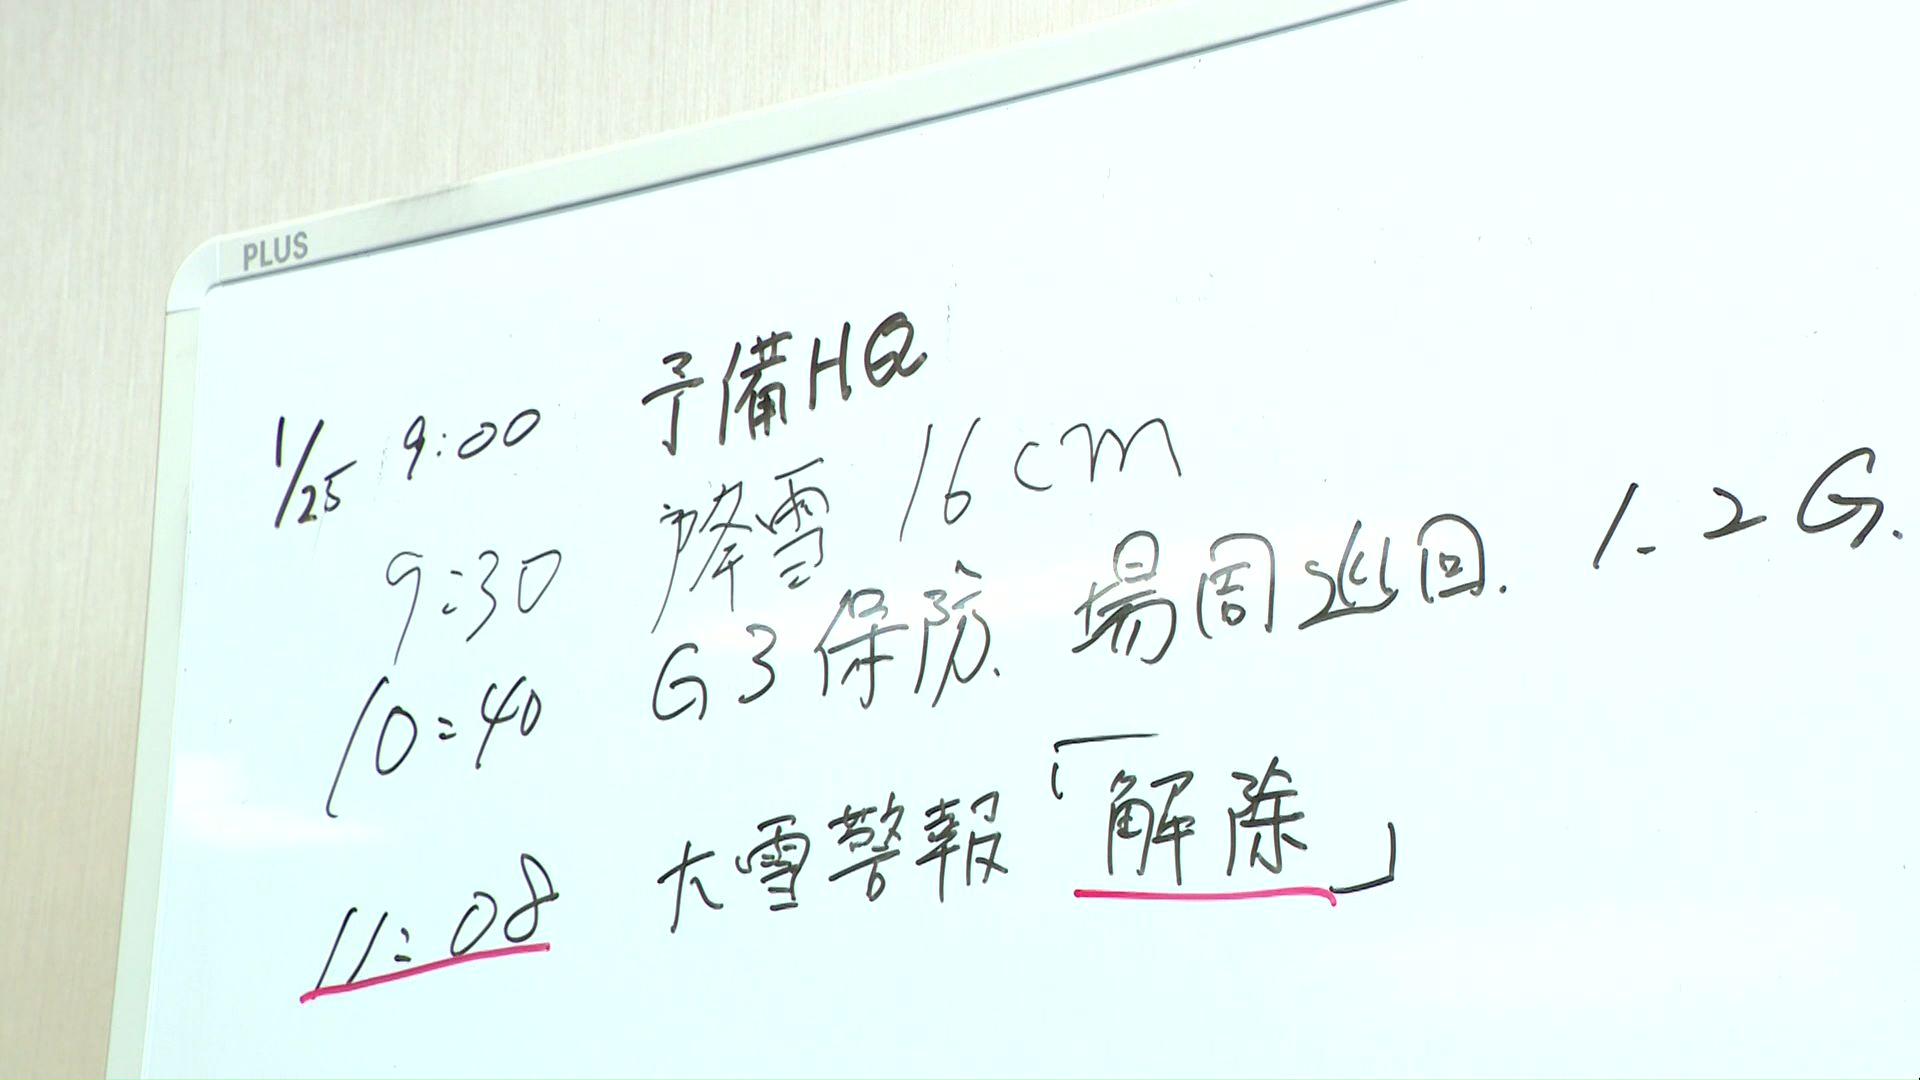 PLUS
1/25 9:00 予備HQ
9:30 降雪 16cm
10:40 G3保防. 場周巡回. 1.2G.
11:08 大雪警報「解除」